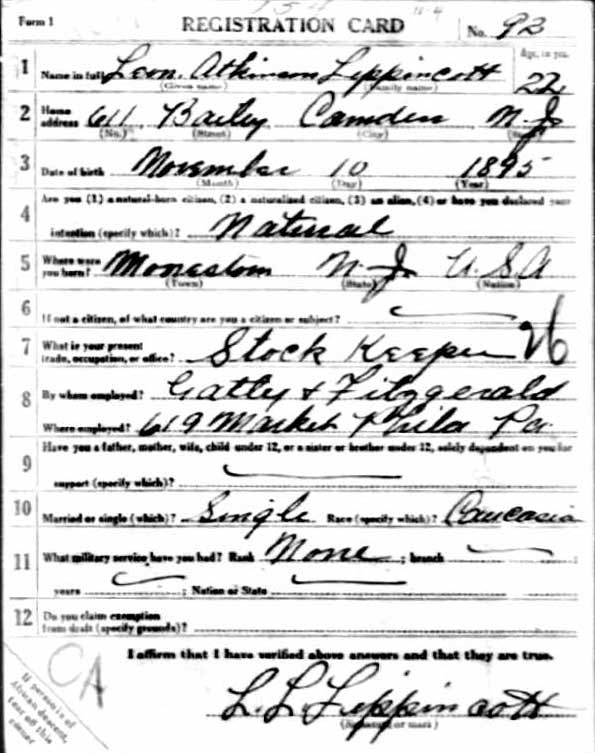 Form 1 REGISTRATION CARD No. 92
1 Name in full Leon Atkinson Lippincott Age, in yrs. 22
(Given name) (Family name)
2 Home address 611 Bailey Camden N.J.
(No.) (Street) (City) (State)
3 Date of birth November 10 1895
(Month) (Day) (Year)
4 Are you (1) a natural-born citizen, (2) a naturalized citizen, (3) an alien, (4) or have you declared your
intention (specify which)? Natural
5 Where were you born? Moorestown N.J. U.S.A
(Town) (State) (Nation)
6 If not a citizen, of what country are you a citizen or subject?
7 What is your present trade, occupation, or office? Stock Keeper 26
8 By whom employed? Gatly & Fitzgerald
Where employed? 619 Market Phila Pa.
9 Have you a father, mother, wife, child under 12, or a sister or brother under 12, solely dependent on you for
support (specify which)?
10 Married or single (which)? Single Race (specify which)? Caucasia
11 What military service have you had? Rank None ; branch
years ; Nation or State
12 Do you claim exemption
from draft (specify grounds)?
I affirm that I have verified above answers and that they are true.
CA
L. L. Lippincott
(Signature or mark)
If person is of
African descent,
tear off this
corner